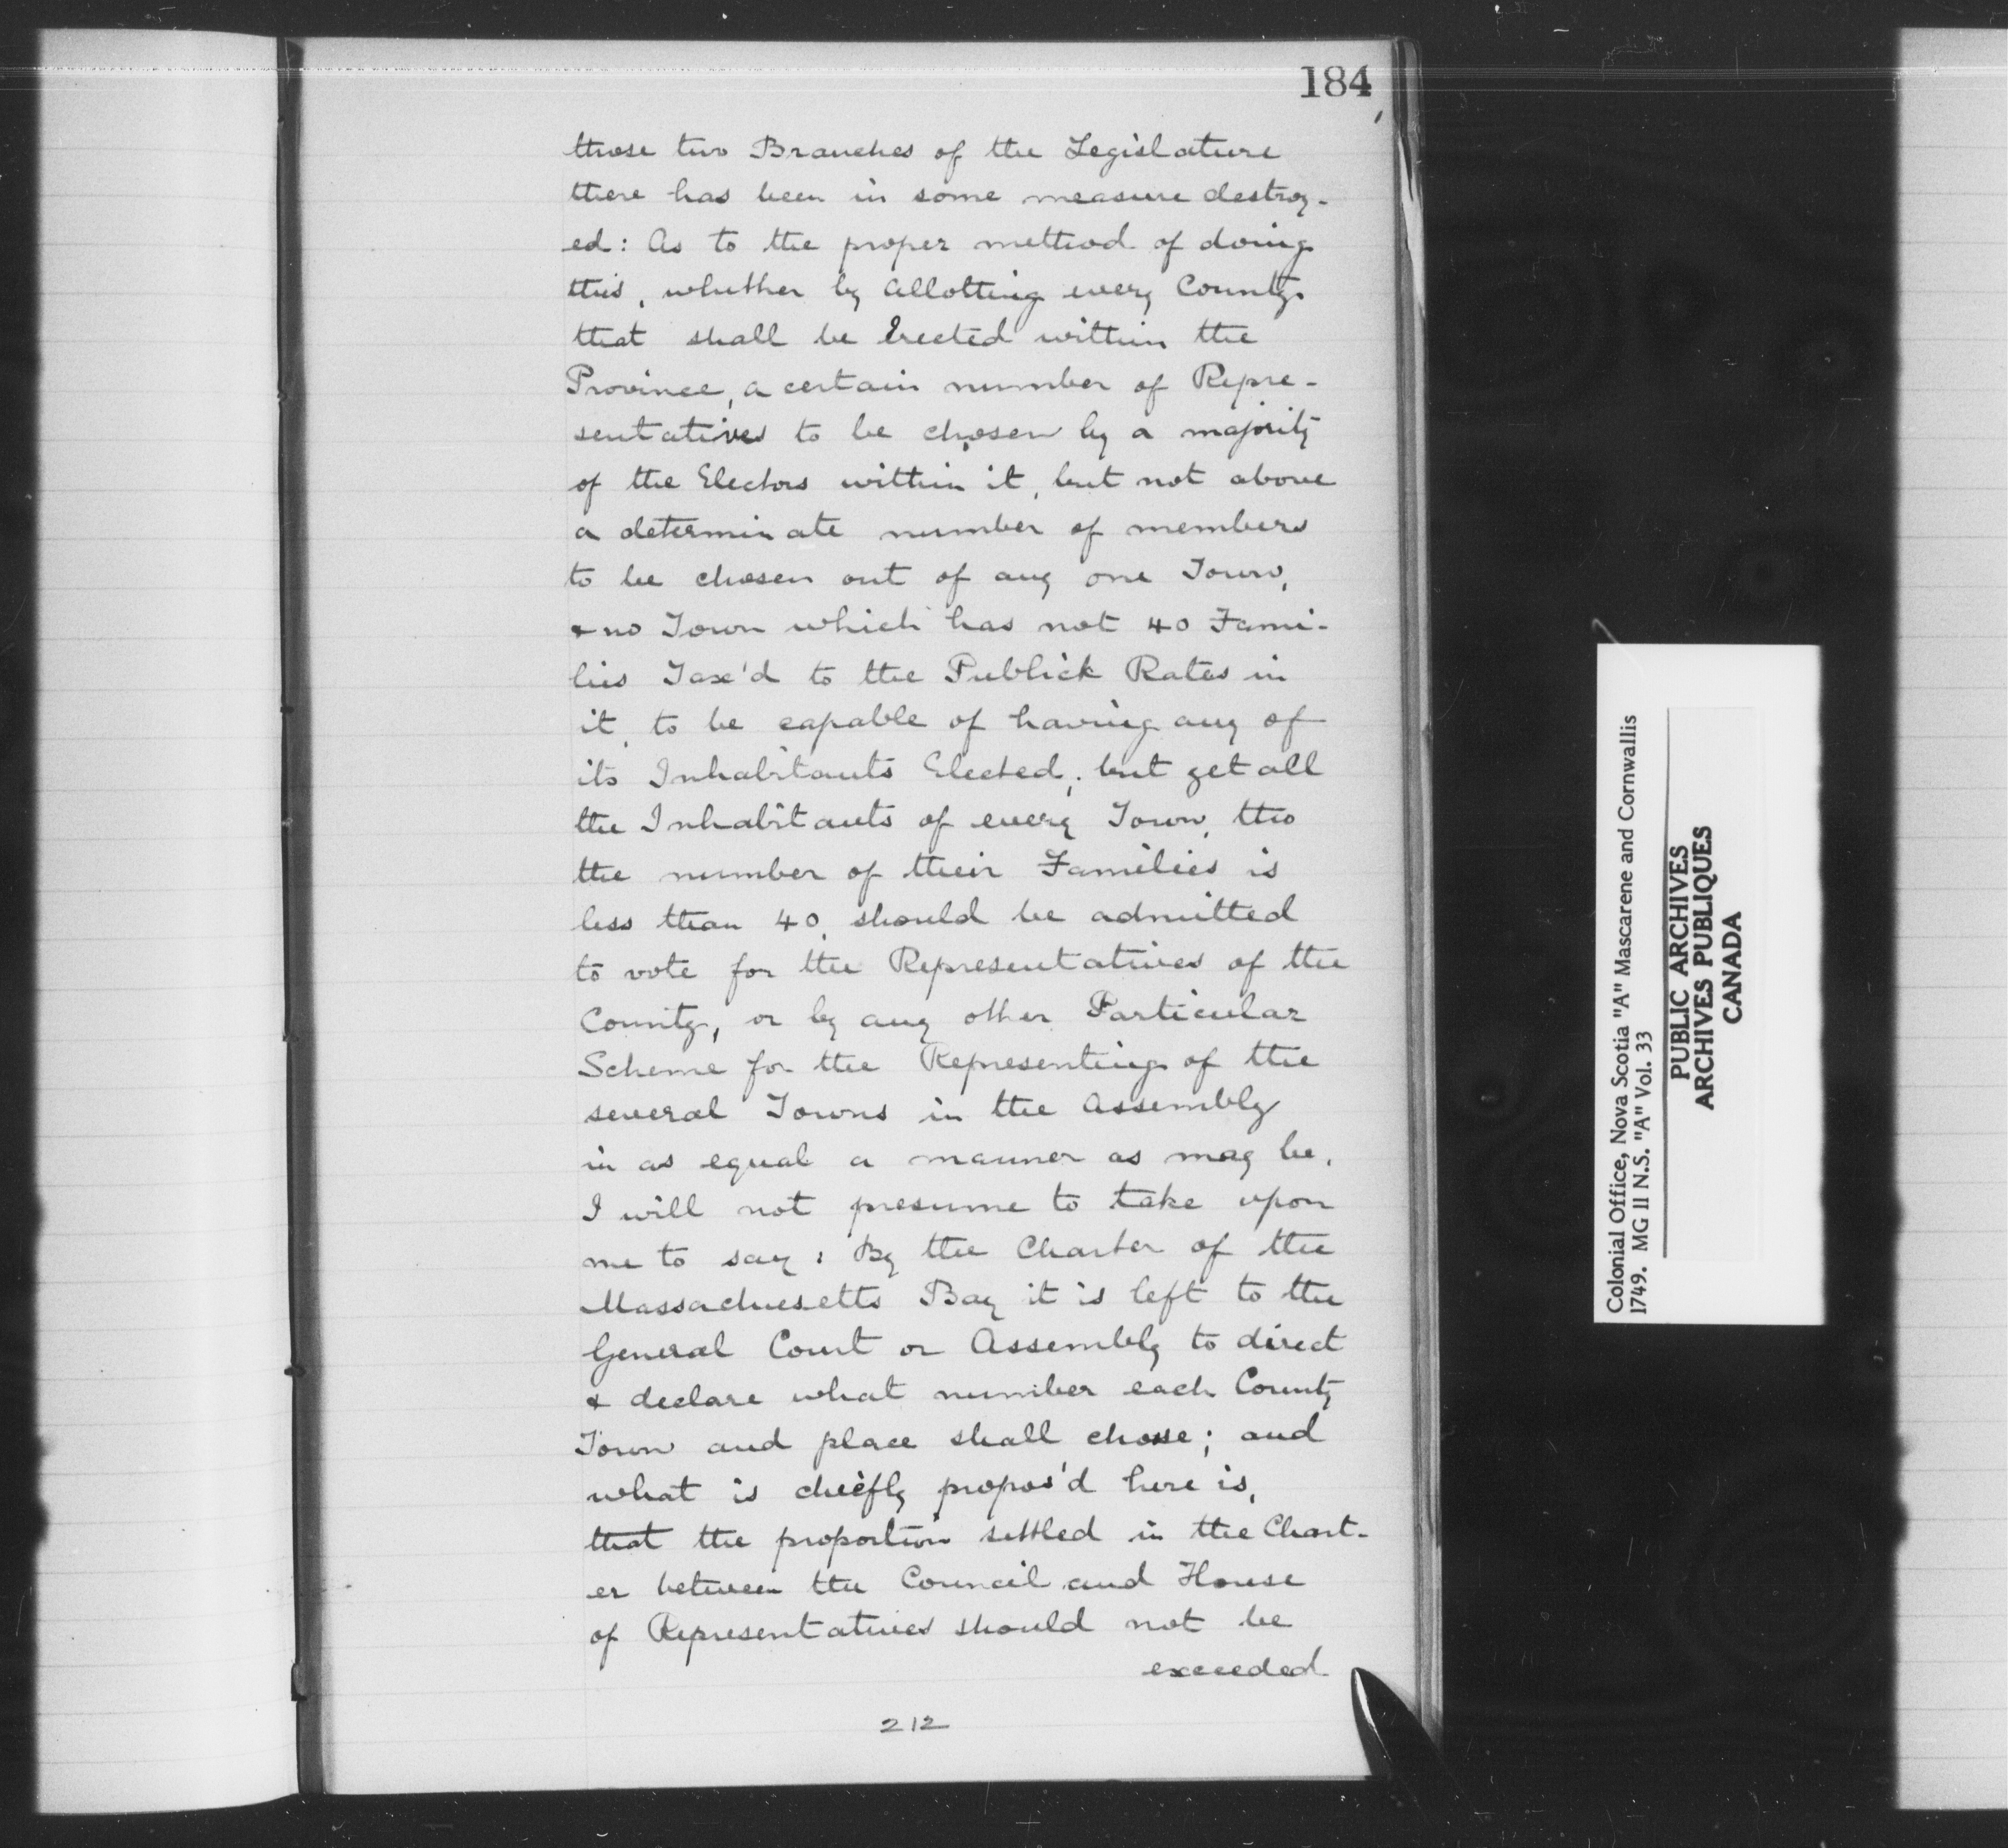 184
those two Branches of the Legislature
there has been in some measure destroy-
ed: As to the proper method of doing
this, whether by allotting every County
that shall be Erected within the
Province, a certain number of Repre-
sentatives to be chosen by a majority
of the Electors within it, but not above
a determinate number of members
to be chosen out of any one Town,
& no Town which has not 40 Fami-
lies Tax'd to the Publick Rates in
it, to be capable of having any of
its Inhabitants Elected; but yet all
the Inhabitants of every Town, tho
the number of their Families is
less than 40, should be admitted
to vote for the Representatives of the
County, or by any other Particular
Scheme for the Representing of the
several Towns in the Assembly
in as equal a manner as may be,
I will not presume to take upon
me to say: By the Charter of the
Massachusetts Bay it is left to the
General Court or Assembly to direct
& declare what number each County
Town and place shall chose; and
what is chiefly propos'd here is,
that the proportion settled in the Chart-
er between the Council and House
of Representatives should not be
exceeded
212
Colonial Office, Nova Scotia "A" Mascarene and Cornwallis
1749. MG II N.S. "A" Vol. 33
PUBLIC ARCHIVES
ARCHIVES PUBLIQUES
CANADA